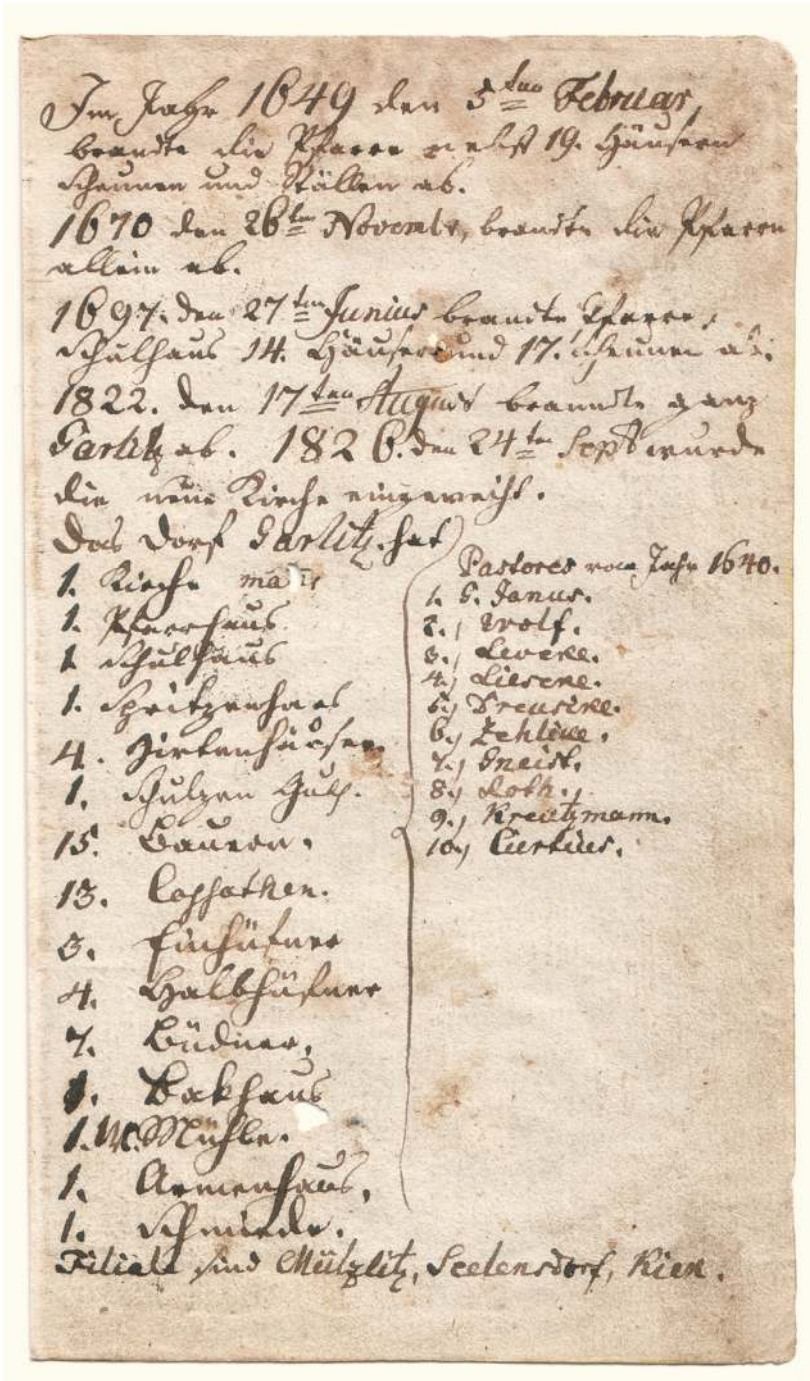 Im Jahr 1649 den 5ten Februar,
brandte die Pfarre nebst 19. Häusern
Scheunen und Ställen ab.
1670 den 26ten Novembr, brandte die Pfarre
allein ab.
1697. den 27ten Junius brandte Pfarre,
Schulhaus 14. Häuser und 17. Scheunen ab.
1822. den 17ten August brandte ganz
Garlitz ab. 1826. den 24ten Sept wurde
die neue Kirche eingeweiht.
Das Dorf Garlitz hat
1. Kirche mater
1. Pfarrhaus
1 Schulhaus
1. Spritzenhaus
4. Hirtenhäuser
1. Schulzen
15. Bauern.
13. Cossathen.
3. Einhüfner
4. Halbhüfner
7. Büdner,
1. Bakhaus
1. W. Mühle.
1. Armenhaus,
1. Schmiede.
Pastores vom Jahr 1640.
1. G. Janus.
2., Wolf.
3., Levere.
4., Liesere.
5., Preusike.
6., Zehlike.
7., Gneist.
8., Roth.
9., Kreutzmann.
10., Curtius.
Filiale sind Mützlitz, Seelensdorf, Kiek.